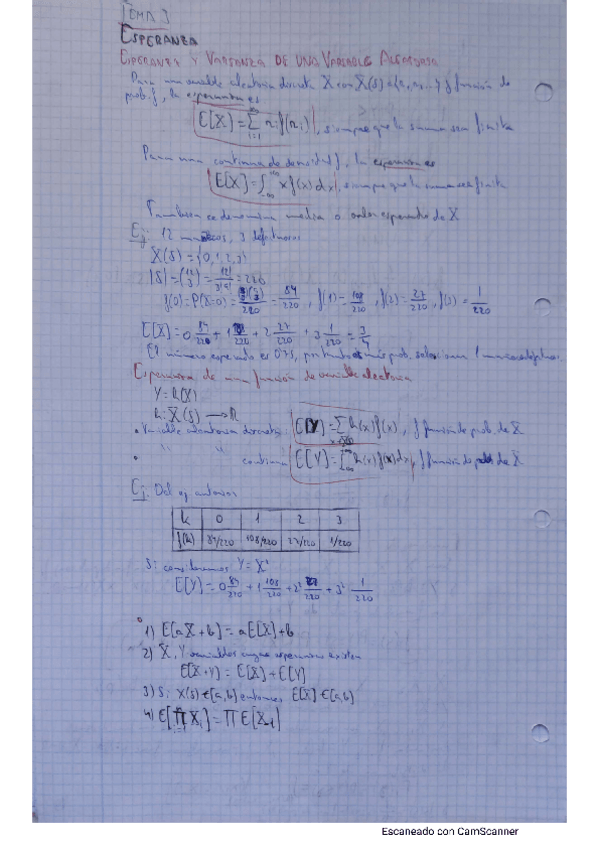 TEMA 3
ESPERANZA
ESPERANZA Y VARIANZA DE UNA VARIABLE ALEATORIA
Para una variable aleatoria discreta X con X(S)={x₁, x₂, ...} y f función de
prob. f, la esperanza es
E[X]=∑ᵢ₌₁^∞ xᵢ f(xᵢ), siempre que la suma sea finita
Para una continua de densidad f, la esperanza es
E[X]=∫₋∞^+∞ x f(x) dx, siempre que la suma sea finita
También se denomina media o valor esperado de X
Ej: 12 , 3 defectuosos
X(S)={0,1,2,3}
|S|=(12 3)=12!/3!9!=220
f(0)=P(X=0)= /220=84/220, f(1)=108/220, f(2)=27/220, f(3)=1/220
E[X]=0 84/220+1 108/220+2 27/220+3 1/220=3/4
El número esperado es 0.75, por tanto es más prob. seleccionar 1
Esperanza de una función de variable aleatoria
Y=h(X)
h: X(S)→ℝ
• Variable aleatoria discreta: E[Y]=∑ h(x)f(x), f función de prob. de X
• " " continua E[Y]=∫₋∞^∞ h(x)f(x)dx, f función de de X
Ej. Del ej anterior
k 0 1 2 3
f(k) 84/220 108/220 27/220 1/220
Si consideramos Y=X²
E[Y]=0 84/220+1 108/220+2² 27/220+3² 1/220
1) E[aX+b]=aE[X]+b
2) X, Y variables cuyas esperanzas existen
E[X+Y]=E[X]+E[Y]
3) Si X(S)∈[a,b] entonces E[X]∈[a,b]
4) E[∏ Xᵢ]=∏ E[Xᵢ]
Escaneado con CamScanner